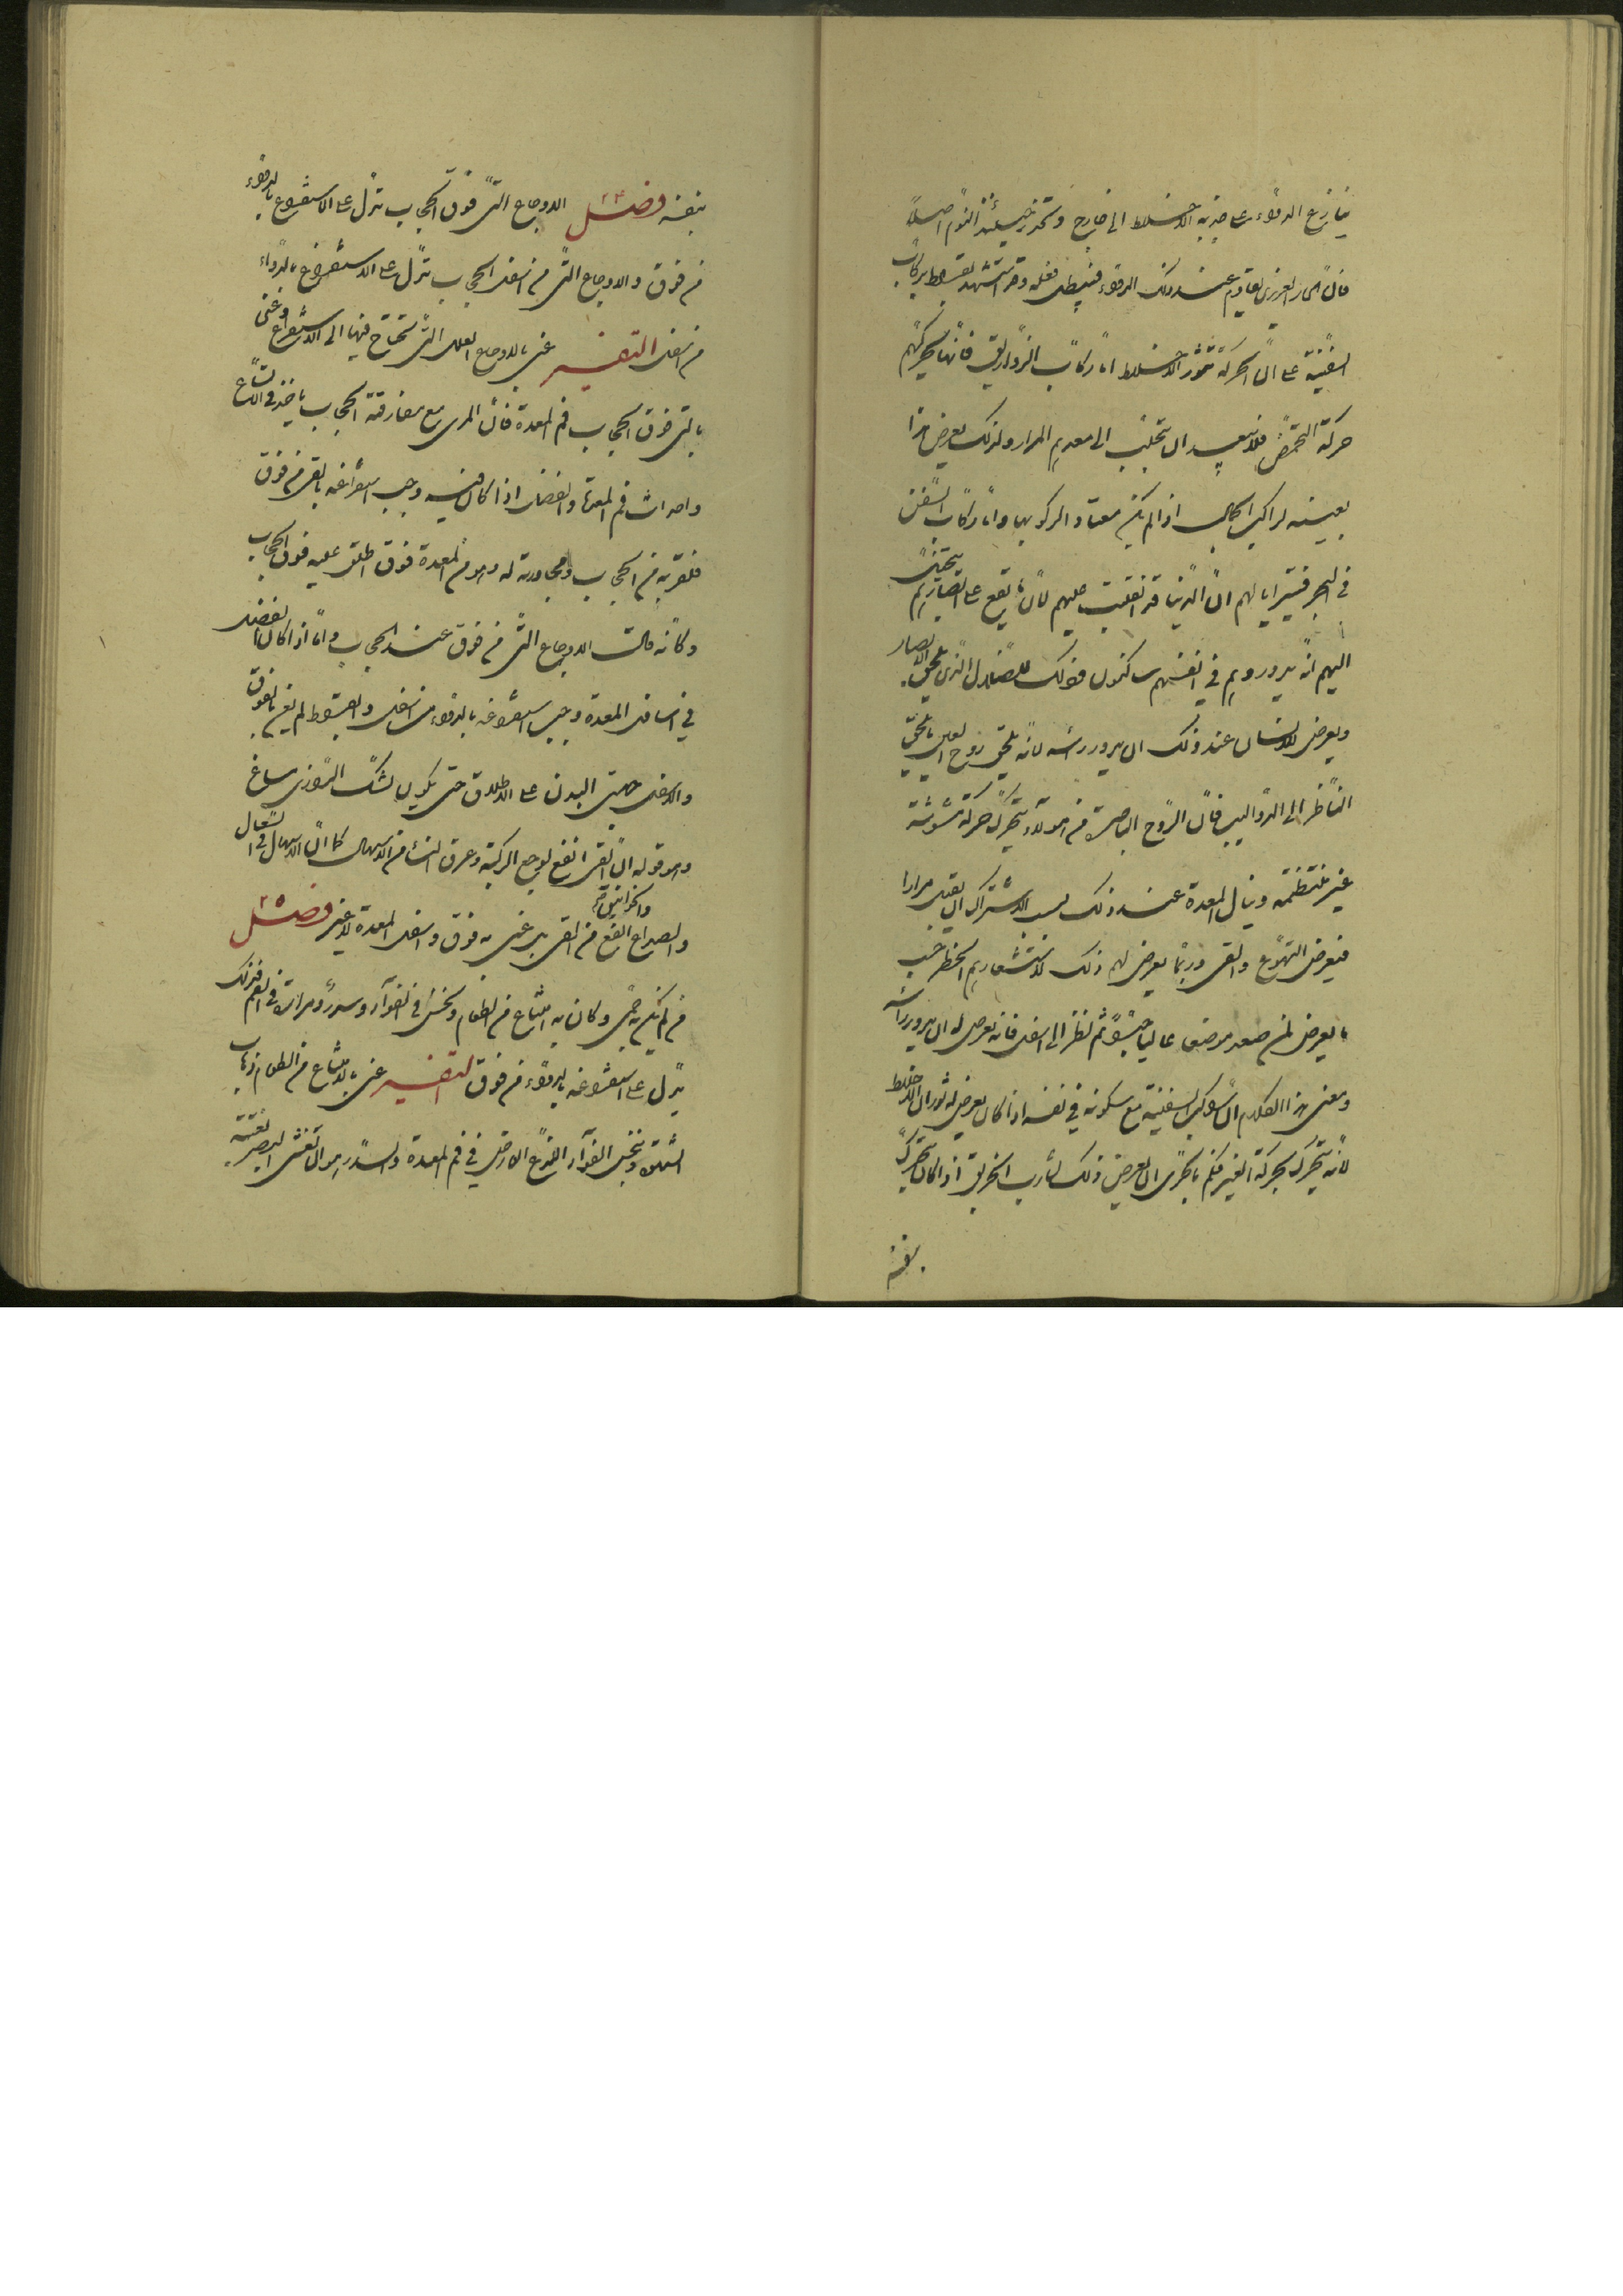 ينازع الدواء على جذبه الاخلاط الى خارج وتحذر حينئذ النوم اصلا
فان الحار الغريزى يقاوم عند ذلك الدواء فيبطل فعله وقد استشهد بقراط بركاب
السفينة على ان الحركة تثور الاخلاط اما ركاب الزواريق فانها تحركهم
حركة التخضض فلا يبعد ان يتحلب الى معدهم المرار ولذلك يعرض هذا
بعينه لراكب الجمال اذا لم يكن معتاد الركوبها واما ركاب السفن
فى البحر فيترايا لهم ان الدنيا قد انقلبت عليهم لان ما يقع على ابصارهم يتخيل
اليهم انه يدور وهم فى انفسهم ساكنون وذلك للضلال الذى يلحق الابصار
ويعرض للانسان عند ذلك ان يدور راسه لانه يلحق روح العين ما يلحق
الناظر الى الدواليب فان الروح الباصرة من هولاء يتحرك حركة مشوشة
غير منتظمة وينال المعدة عند ذلك بسبب الاشتراك ان يقبل مرارا
فيعرض التهوع والقى وربما يعرض لهم ذلك لاستشعارهم الخطر حسب
ما يعرض لمن صعد موضعا عاليا جدا ثم نظر الى اسفل فانه يعرض له ان يدور راسه
ومعنى هذا الكلام ان راكب السفينة مع سكونه فى نفسه اذا كان يعرض له ثوران الاخلاط
لانه يتحرك بحركة الغير فكم بالحرى ان يعرض ذلك لشارب الخربق اذا كان يتحرك
بنفسه
بنفسه فصل ٢٤ الاوجاع التى فوق الحجاب تدل على الاستفراغ بالدواء
من فوق والاوجاع التى من اسفل الحجاب تدل على الاستفراغ بالدواء
من اسفل التفسير عنى بالاوجاع العلل التى تحتاج فيها الى الاستفراغ وعنى
بالتى فوق الحجاب فم المعدة فان المرى مع مفارقته الحجاب ياخذ فى الاتساع
واحداث فم المعدة والفضل اذا كان فيه وجب استفراغه بالقى من فوق
فلقربه من الحجاب ومجاورته له وهو فم المعدة فوق اطلق عليه فوق الحجاب
وكانه قال الاوجاع التى من فوق عند الحجاب واما اذا كان الفضل
فى اسافل المعدة وجب استفراغه بالدواء من اسفل وبقراط لم يعن بالفوق
والاسفل جانبى البدن على الاطلاق حتى يكون لشك الرازى مساغ
وهو قوله ان القى انفع لوجع الركبة وعرق النسا من الاسهال كما ان الاسهال فى السعال
والصداع والخوانيق انفع من القى بل عنى به فوق واسفل المعدة لا غير فصل ٢٥
من لم يكن به حمى وكان به امتناع من الطعام ونخس فى الفواد وسدر ومرارة فى الفم فذلك
يدل على استفراغه بالدواء من فوق التفسير عنى بالامتناع من الطعام ذهاب
الشهوة وبنخس الفواد اللذع العارض فى فم المعدة والسدر هو ان تغشى البصر بغتة